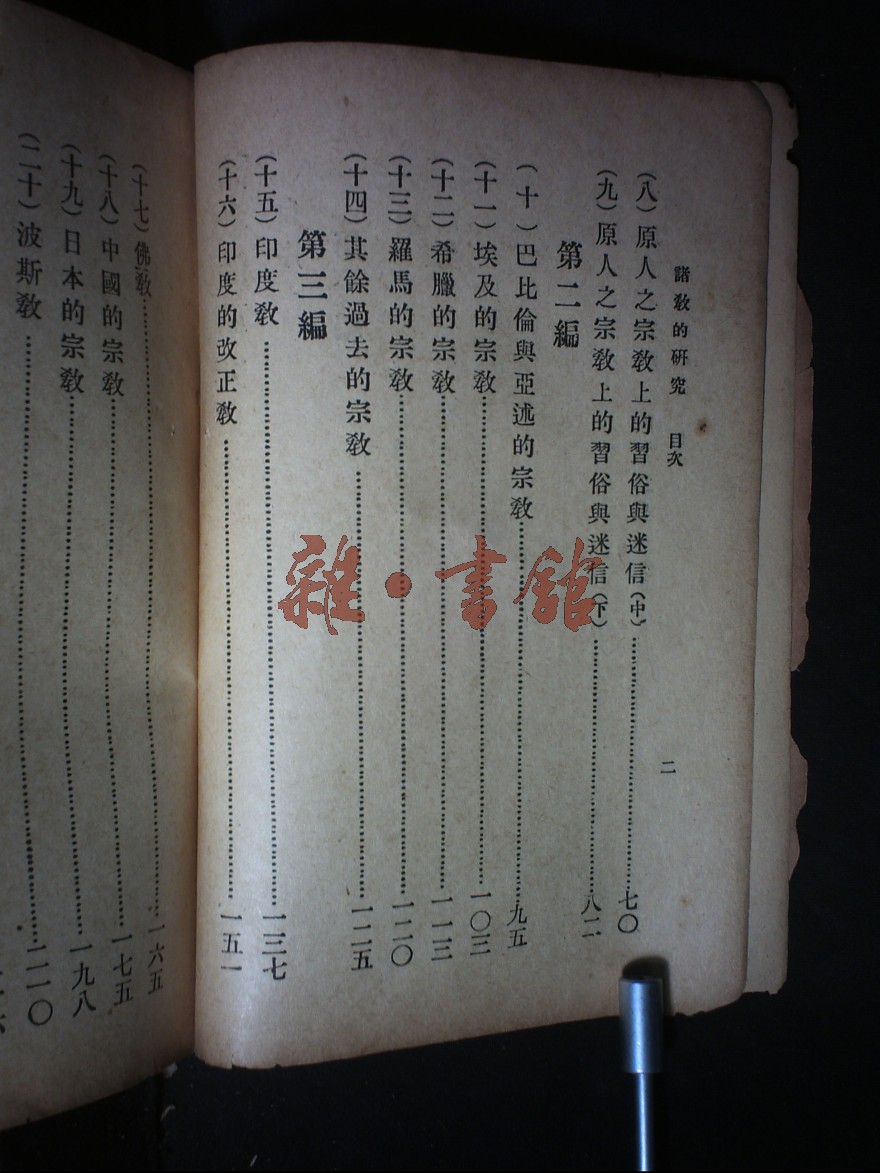 諸敎的研究 目次
二
(八)原人之宗敎上的習俗與迷信(中)……七〇
(九)原人之宗敎上的習俗與迷信(下)……八二
第二編
(十)巴比倫與亞述的宗敎……九五
(十一)埃及的宗敎……一〇三
(十二)希臘的宗敎……一一三
(十三)羅馬的宗敎……一二〇
(十四)其餘過去的宗敎……一二五
第三編
(十五)印度敎……一三七
(十六)印度的改正敎……一五一
(十七)佛敎……一六五
(十八)中國的宗敎……一七五
(十九)日本的宗敎……一九八
(二十)波斯敎……二一〇
雜·書館